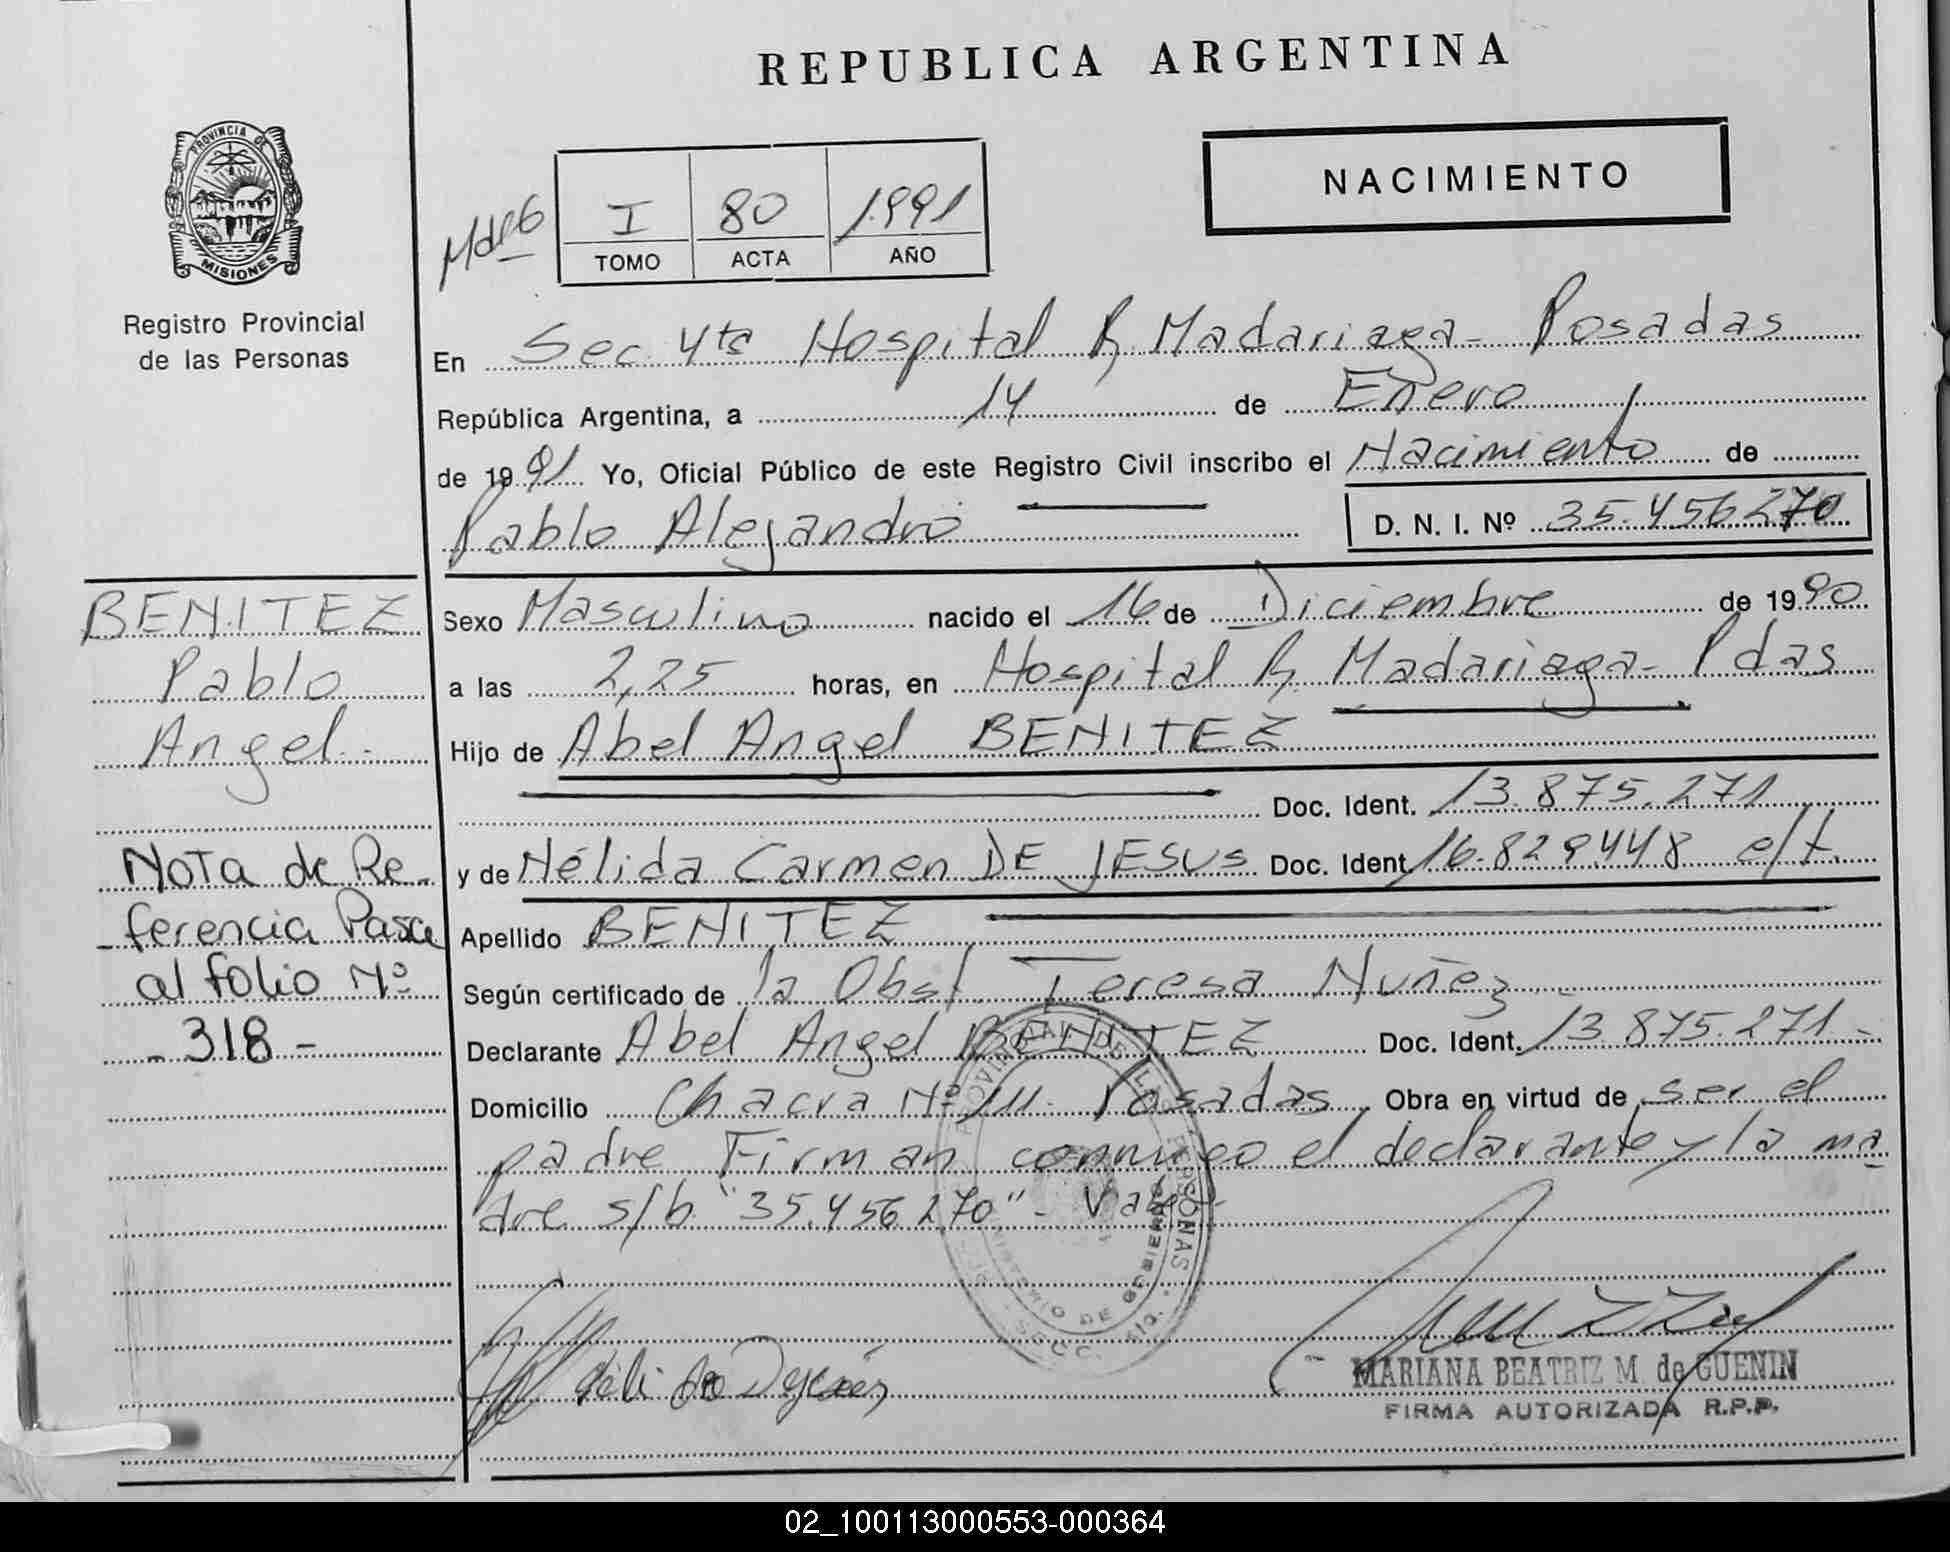 REPUBLICA ARGENTINA
PROVINCIA DE
MISIONES
Registro Provincial
de las Personas
NACIMIENTO
I 80 1991
TOMO ACTA AÑO
En Sec. 4ta Hospital R. Madariaga - Posadas
República Argentina, a 14 de Enero
de 1991 Yo, Oficial Público de este Registro Civil inscribo el Nacimiento de
Pablo Alejandro D. N. I. Nº 35.456270
BENITEZ
Pablo
Angel.-
Nota de Re-
ferencia Pasa
al folio Nº
- 318 -
Sexo Masculino nacido el 16 de Diciembre de 1990
a las 2,25 horas, en Hospital R. Madariaga - Pdas
Hijo de Abel Angel BENITEZ
Doc. Ident. 13.875.271
y de Nélida Carmen DE JESUS Doc. Ident. 16.829.448 e/t.
Apellido BENITEZ
Según certificado de la Obst. Teresa Nuñez
Declarante Abel Angel BENITEZ Doc. Ident. 13.875.271-
Domicilio Chacra Nº Posadas Obra en virtud de ser el
padre Firman conmigo el declarante y la ma-
dre s/b "35.456270" - Vale-
MINISTERIO DE GOBIERNO
MARIANA BEATRIZ M. de GUENIN
FIRMA AUTORIZADA R.P.P.
02_100113000553-000364